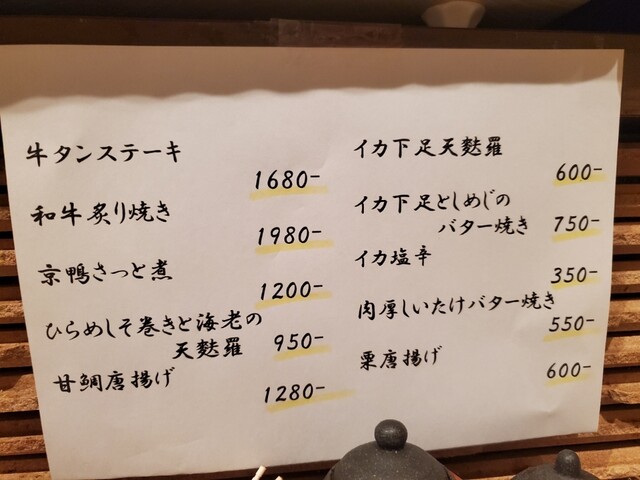 牛タンステーキ
1680-
和牛炙り焼き
1980-
京鴨さっと煮
1200-
ひらめしそ巻きと海老の
天麩羅 950-
甘鯛唐揚げ
1280-
イカ下足天麩羅
600-
イカ下足としめじの
バター焼き 750-
イカ塩辛
350-
肉厚しいたけバター焼き
550-
栗唐揚げ
600-